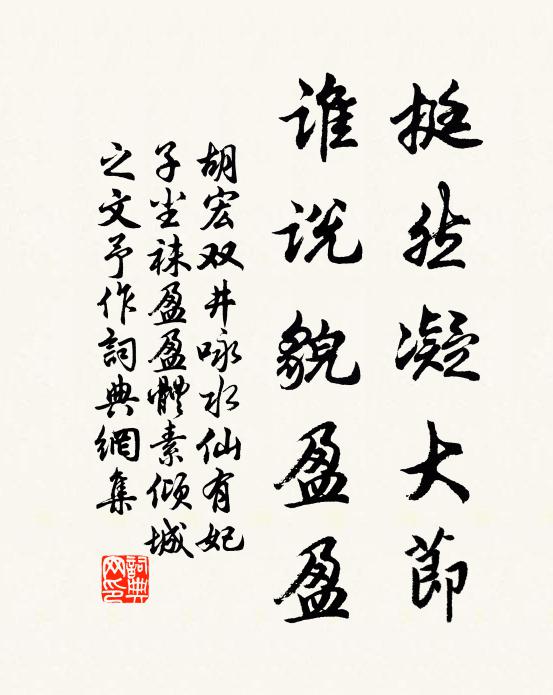 挺然凝大節
谁说貌盈盈
胡宏双井咏水仙有妃
子尘袜盈盈體素倾城
之文予作詞典網集
詞典网印